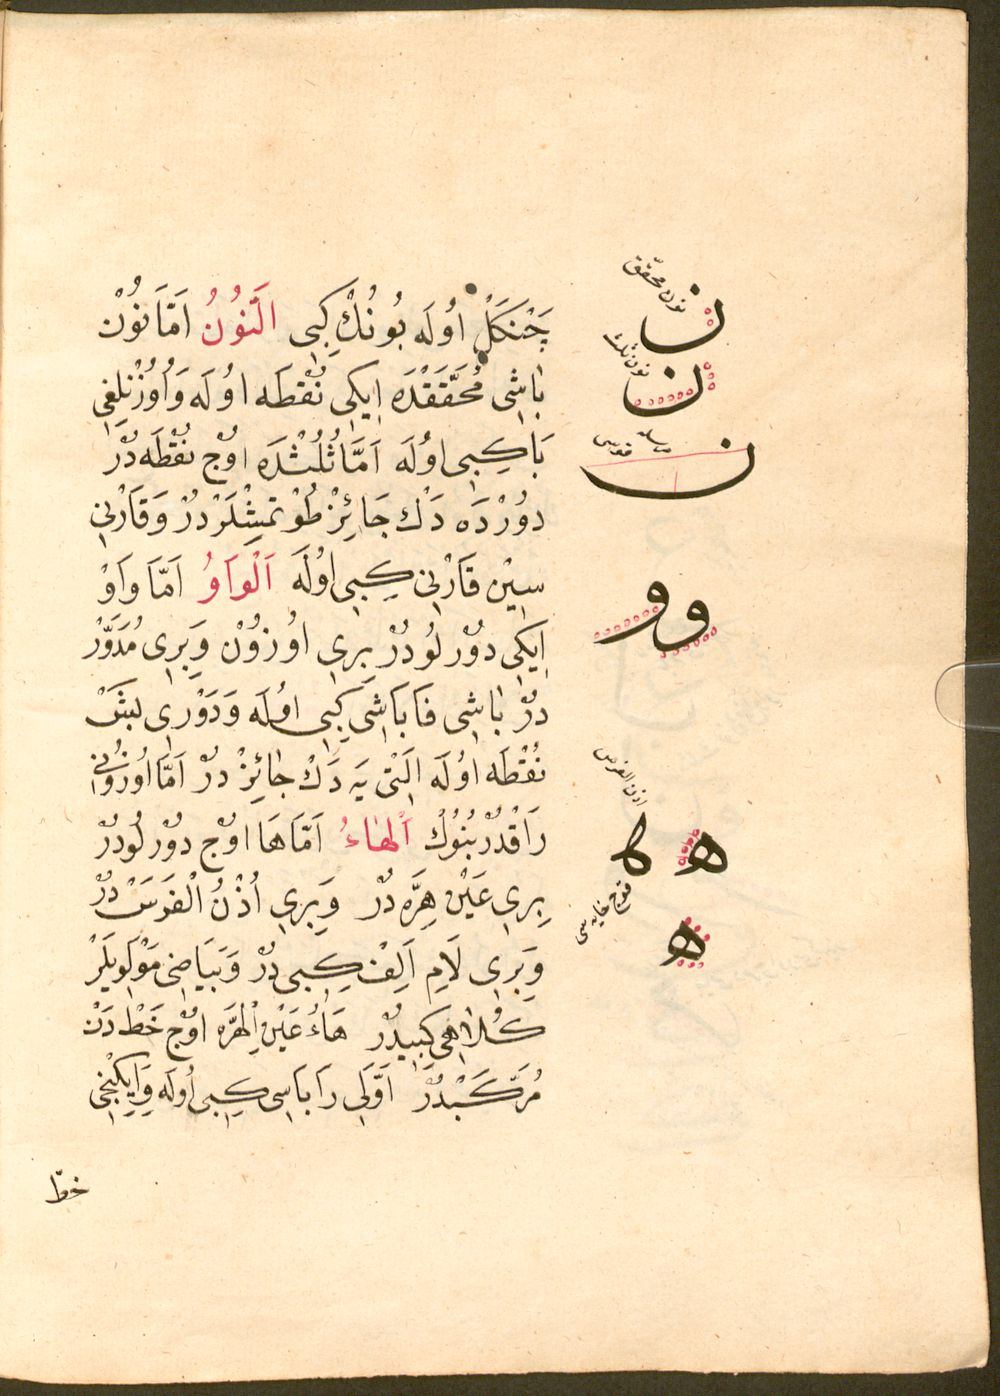 چَنْكَلْ اُولَه بُونُكْ كِبِى اَلنُّونُ اَمَّا نُوْن
بَاشِى مُحَقَّقْدَه اِيكِى نُقْطَه اوُلَه وَ اُوزُنْلِغِى
بَا كِبِى اوُلَه اَمَّا ثُلُثْدَه اوُچ نُقْطَه دُرْ
دوُرْدَه دَكْ جَائِزْ طُوْتمِشْلَرْدُرْ وَ قَارْنِى
سِيْن قَارْنِى كِبِى اوُلَه اَلْوَاوُ اَمَّا وَاوْ
اِيكِى دوُرْلُودُرْ بِرِى اوُزوُنْ وَبِرِى مُدَوَّرْ
دُرْ بَاشِى فَا بَاشِى كِبِى اوُلَه وَ دَوْرِى بَشْ
نُقْطَه اوُلَه اَلْتِى يَه دَكْ جَائِزْ دُرْ اَمَّا اُوزُونِى
رَا قَدَرْدُرْ بُنُوكْ اَلْهَاءُ اَمَّا هَا اوُچ دوُرْلُودُرْ
بِرِى عَيْن هِرَّه دُرْ وَبِرِى اُذْنُ الْفَرَسْ دُرْ
وَبِرِى لَامِ اَلِفْ كِبِى دُرْ وَبَيَاضِى مَوْلَوِيلَرْ
كُلَاهِى كِبِيدُرْ هَاءُ عَيْنِ اْلهِرَّه اوُچ خَطْ دَنْ
مُرَكَّبْدُرْ اَوَّلِى رَا بَاسِى كِبِى اُولَه وَ اِيكِنْجِى
خطّ
نون محقّق
ن
نون ثلث
ن
ن
و و
اذن الفرس
ه ه
ه